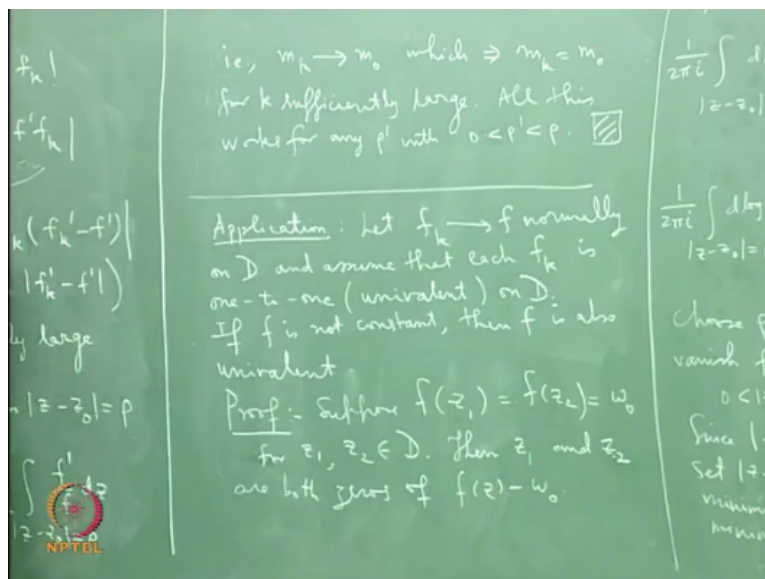 f_k|
f'f_k|
k(f_k' - f')|
|f_k' - f'|)
ly large
|z - z_0| = ρ
∫ f' dz
|z - z_0| = ρ
NPTEL
i.e., m_k → m_0 which ⇒ m_k = m_0
for k sufficiently large. All this
works for any ρ' with 0 < ρ' < ρ.
Application: Let f_k → f normally
on D and assume that each f_k is
one-to-one (univalent) on D.
If f is not constant, then f is also
univalent.
Proof:- Suppose f(z_1) = f(z_2) = w_0
for z_1, z_2 ∈ D. Then z_1 and z_2
are both zeros of f(z) - w_0.
1/2πi ∫ d
|z - z_0|
1/2πi ∫ dlog
|z - z_0| =
Choose
vanish f
0 < |
Since |
Set |z -
minim